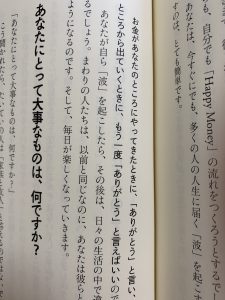 も、自分でも「Happy Money」の流れをつくろうとするで
あなたは、今すぐにでも、多くの人の人生に届く「波」を起こす
すのは、とても簡単です。
お金があなたのところにやってきたときに、「ありがとう」と言い、
ところから出ていくときに、もう一度「ありがとう」と言えばいいので
あなたが自ら「波」を起こしたら、その後は、日々の生活の中で違
るでしょう。まわりの人たちは、以前と同じなのに、あなたは彼らと
ようになるのです。そして、毎日が楽しくなっていきます。
あなたにとって大事なものは、何ですか?
「あなたにとって大事なものは、何ですか?」